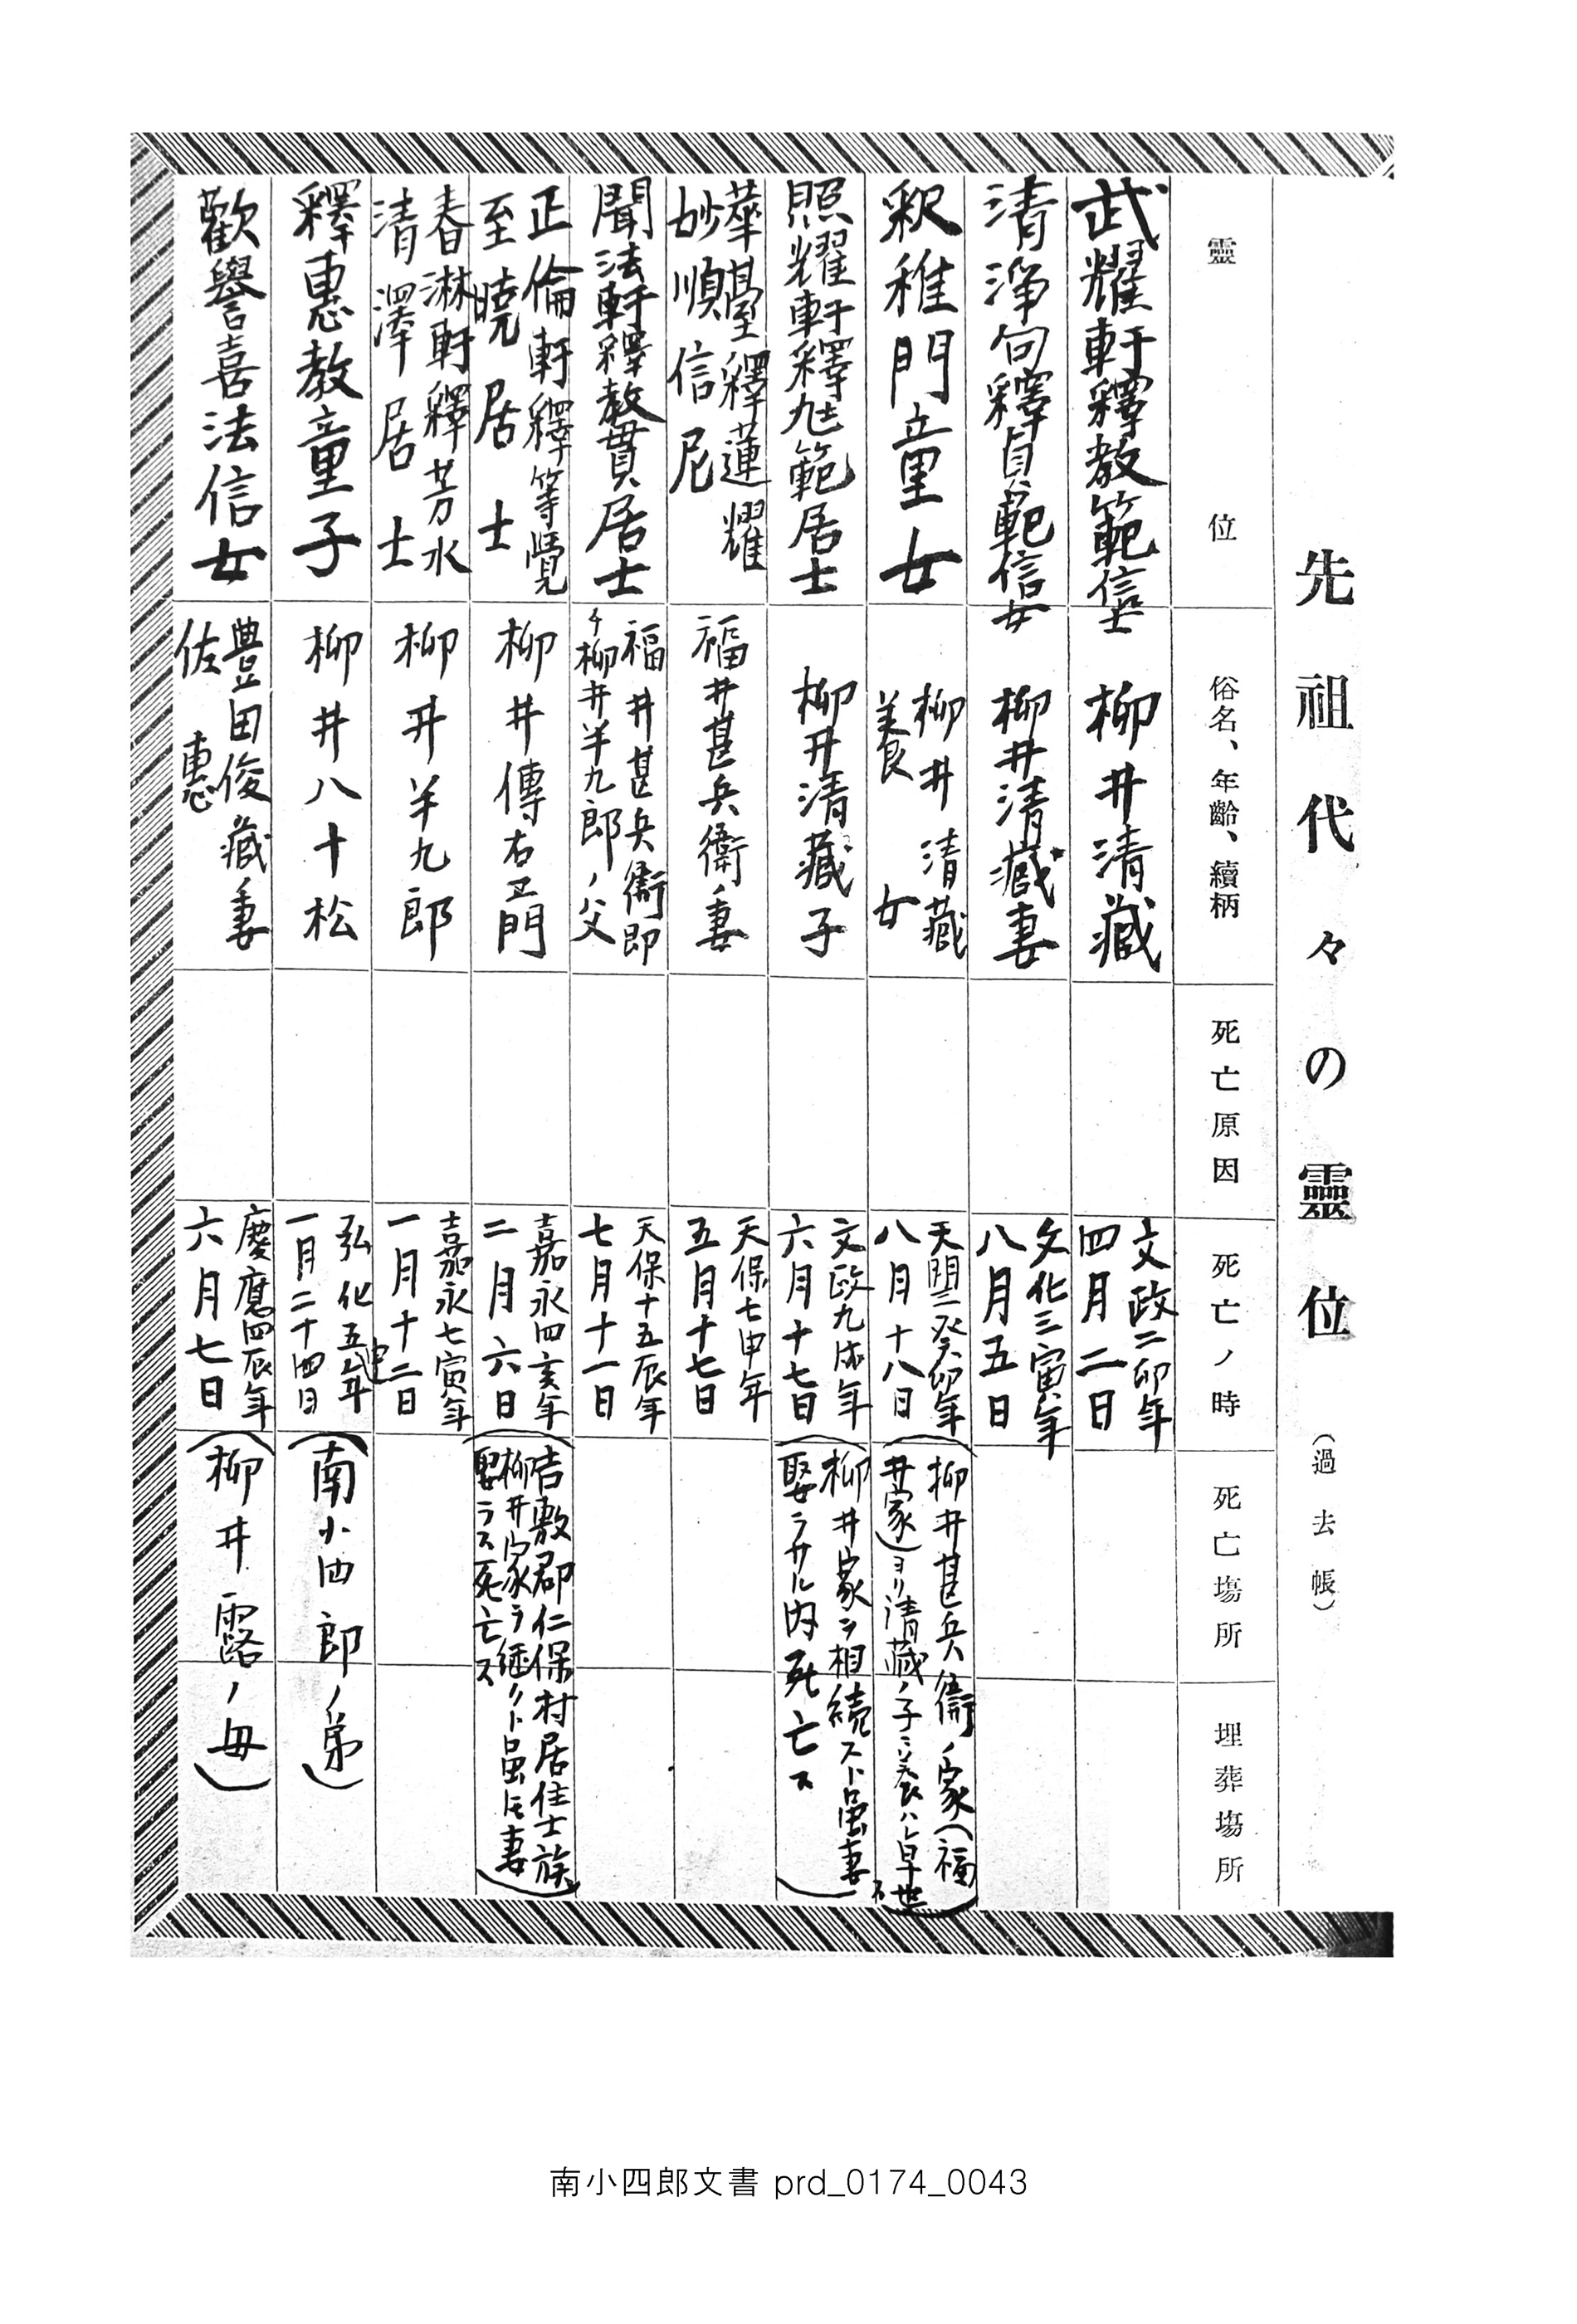 先祖代々の靈位 (過去帳)
靈位
俗名、年齡、續柄
死亡原因
死亡ノ時
死亡塲所
埋葬塲所
武耀軒釋教範信士
柳井清藏
文政二卯年
四月二日
清浄句釋貞範信女
柳井清藏妻
文化三寅年
八月五日
釈稚門童女
柳井清藏
女
天明三癸卯年
八月十八日
(柳井甚兵衞ノ家(福
井家)ヨリ清藏ノ子ニ養ハレ早世
照耀軒釋範居士
柳井清藏子
文政九戌年
六月十七日
(柳井家ヲ相続スト雖妻
娶ラサル内死亡ス)
華臺釋蓮耀
妙順信尼
福井甚兵衞ノ妻
天保七申年
五月十七日
聞法軒釋教貫居士
福井甚兵衞即
チ柳井半九郎ノ父
天保十五辰年
七月十一日
正倫軒釋等覺
至曉居士
柳井傳右卫門
嘉永四亥年
二月六日
(吉敷郡仁保村居住士族
柳井家ヲ継クト雖モ妻
娶ラス死亡ス)
春淋軒釋芳水
清澤居士
柳井半九郎
嘉永七寅年
一月十二日
釋惠教童子
柳井八十松
弘化五申年
一月二十四日
(南小四郎ノ弟)
歡譽喜法信女
豊田俊藏ノ妻
佐惠
慶應四辰年
六月七日
(柳井露ノ母)
南小四郎文書 prd_0174_0043